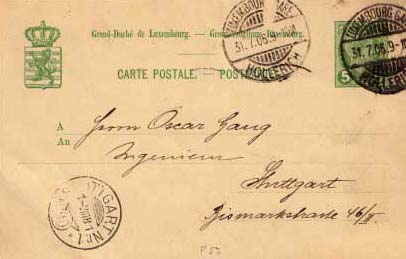 Grand-Duché de Luxembourg. — Großherzogthum Luxemburg.
CARTE POSTALE. — POSTKARTE
5
LUXEMBOURG-GARE
31.7.08.9-
HOLLERICH
LUXEMBOURG-GARE
31.7.08.9-11
HOLLERICH
A
An
Herrn Oscar Gaug
Ingenieur
Stuttgart
Bismarkstraße 46/II
STUTTGART Nr. 1
P 52